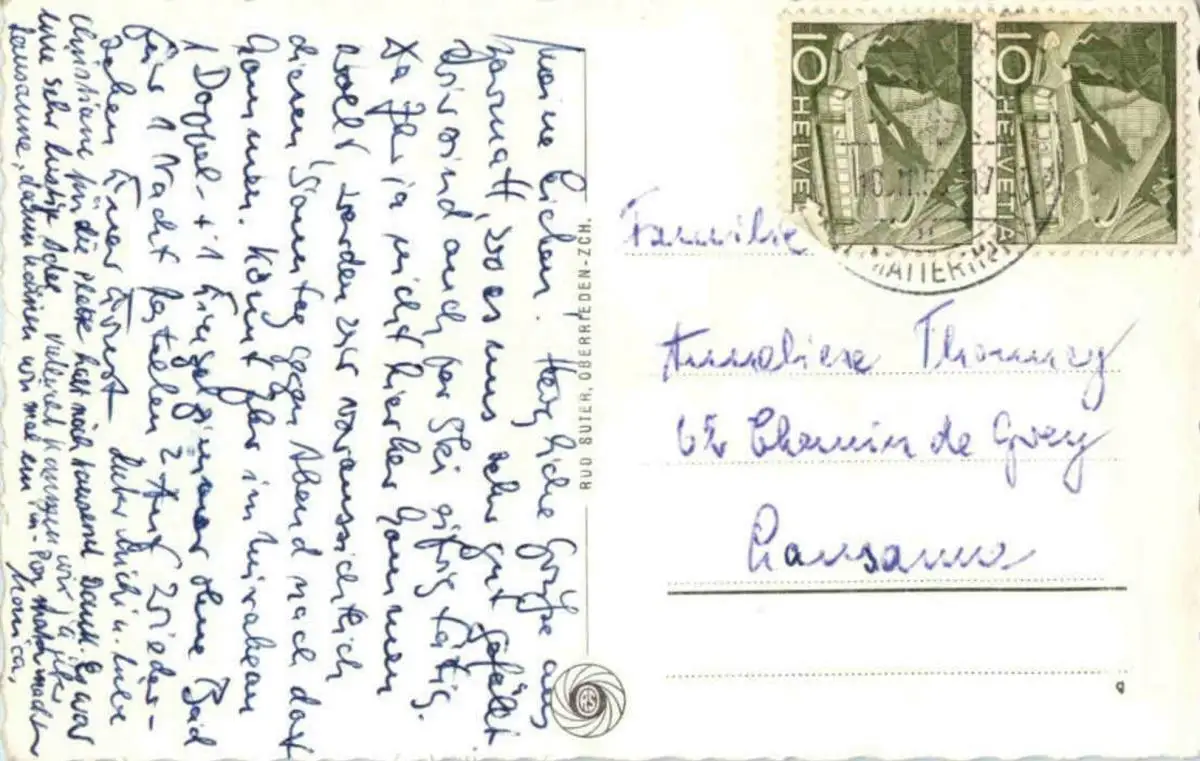 Meine Lieben! Herzliche Grüße aus
Zermatt, wo es uns sehr gut gefällt
Wir sind auch per Ski eifrig tätig.
Da Ihr ja nicht hierher kommen
wollt, werden wir voraussichtlich
diesen Samstag gegen Abend nach dort
kommen. Könnt Ihr im Mirabeau
1 Doppel- + 1 Einzelzimmer ohne Bad
für 1 Nacht bestellen? Auf Wieder-
sehen Euer Ernst Lieber Michi u. liebe
Christiane für die Platte habt noch tausend Dank. Es war
eine sehr lustige Idee. Vielleicht kommen wir ja über
Lausanne, dann können wir mal ein machen
Monica,
RUD SUTER, OBERRIEDEN-ZCH.
10 HELVETIA
10 HELVETIA
MATTERH
Familie
Anneliese Thommy
62 Chemin de Grey
Lausanne